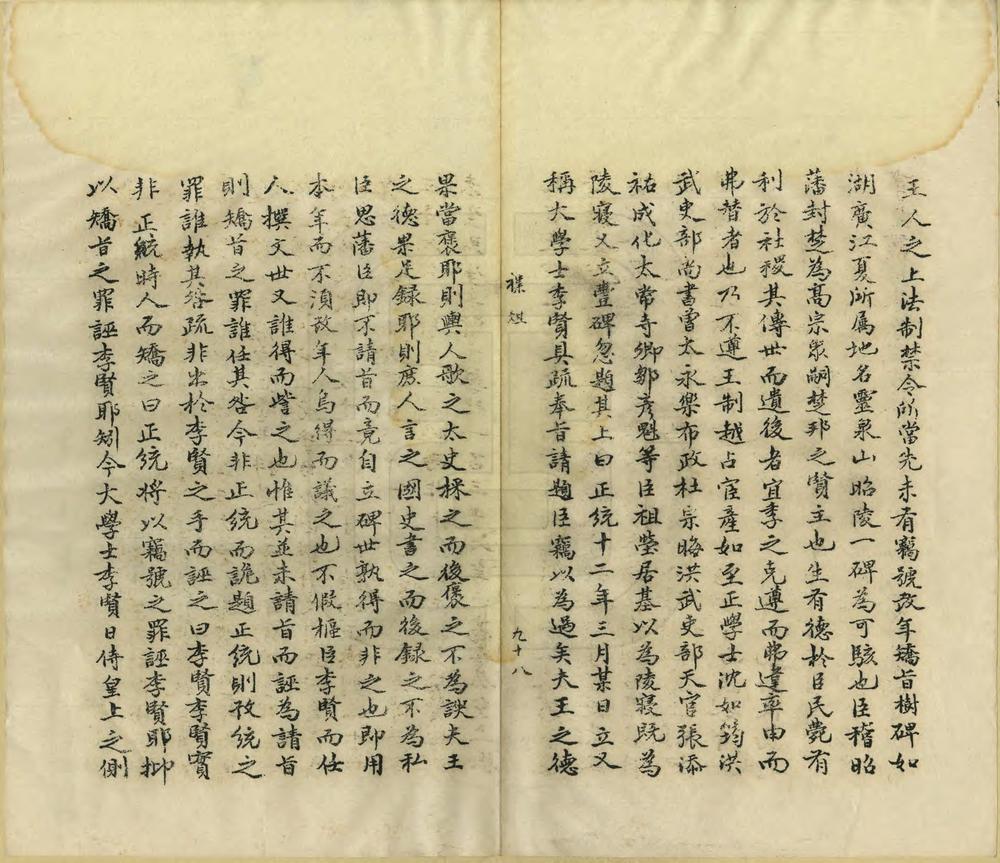 王人之上法制禁令所當先未有竊號改年矯旨樹碑如
湖廣江夏所属地名靈泉山昭陵一碑為可駭也臣稽昭
藩封楚為高宗眾嗣楚邦之賢主也生有德於臣民薨有
利於社稷其傳世而遺後者宜季之克遵而弗違率由而
弗替者也乃不遵王制越占宦產如至正學士沈如筠洪
武吏部尚書曹太永樂布政杜宗晦洪武吏部天官張添
祐成化太常寺卿鄒彥魁等臣祖塋居基以為陵寢既為
陵寢又立豐碑忽題其上曰正統十二年三月某日立又
稱大學士李賢具疏奉旨請題臣竊以為過矣夫王之德
祼爼
九十八
果當褒耶則輿人歌之太史採之而後褒之不為諛夫王
之德果足錄耶則庶人言之國史書之而後録之不為私
臣思藩臣即不請旨而竟自立碑世孰得而非之也即用
本年而不湏改年人烏得而議之也不假樞臣李賢而任
人撰文世又誰得而訾之也惟其並未請旨而誣為請旨
則矯旨之罪誰任其咎今非正統而詭題正統則改統之
罪誰執其咎疏非出於李賢之手而誣之曰李賢李賢實
非正統時人而矯之曰正統将以竊號之罪誣李賢耶抑
以矯旨之罪誣李賢耶矧今大學士李賢日侍皇上之側